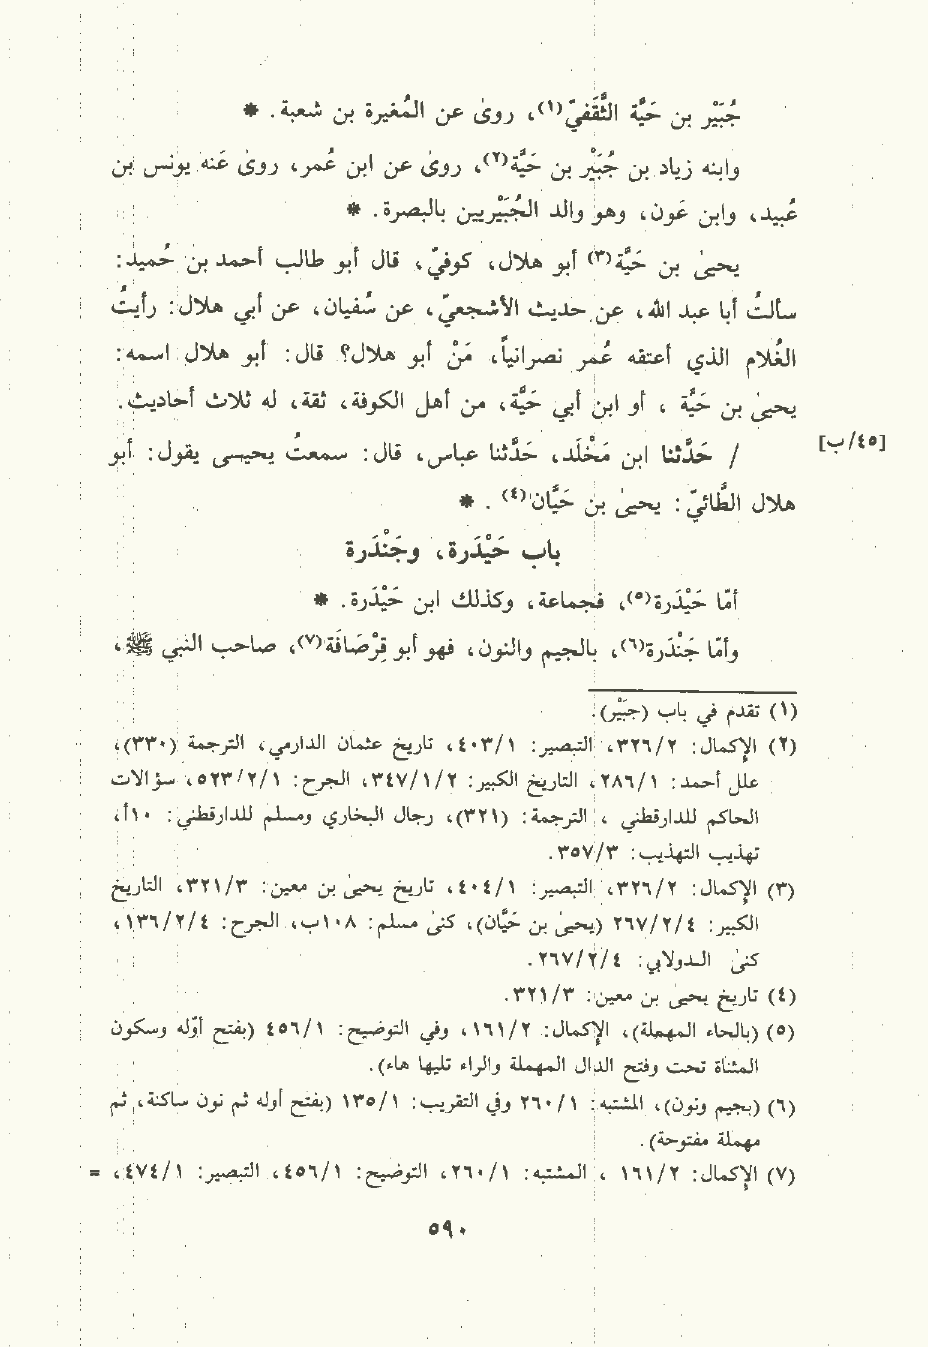 جُبَيْر بن حَيَّة الثَّقَفيّ(١)، روىٰ عن المُغيرة بن شعبة. *
وابنه زياد بن جُبَيْر بن حَيَّة(٢)، روىٰ عن ابن عُمر، روىٰ عَنه يونس بن
عُبيد، وابن عَون، وهو والد الجُبَيْريين بالبصرة. *
يحيىٰ بن حَيَّة(٣) أبو هلال، كوفيّ، قال أبو طالب أحمد بن حُميد:
سألتُ أبا عبد الله، عن حديث الأشجعيّ، عن سُفيان، عن أبي هلال: رأيتُ
الغُلام الذي أعتقه عُمر نصرانياً، مَنْ أبو هلال؟ قال: أبو هلال اسمه:
يحيىٰ بن حَيَّة ، أو ابن أبي حَيَّة، من أهل الكوفة، ثقة، له ثلاث أحاديث.
[٤٥/ب]
/ حَدَّثنا ابن مَخْلَد، حَدَّثنا عباس، قال: سمعتُ يحيىى يقول: أبو
هلال الطَّائيّ: يحيىٰ بن حَيَّان(٤) . *
باب حَيْدَرة، وجَنْدَرة
أمّا حَيْدَرة(٥)، فجماعة، وكذلك ابن حَيْدَرة. *
وأمّا جَنْدَرة(٦)، بالجيم والنون، فهو أبو قِرْصَافَة(٧)، صاحب النبي ﷺ،
(١) تقدم في باب (جبَيْر).
(٢) الإكمال: ٣٢٦/٢، التبصير: ٤٠٣/١، تاريخ عثمان الدارمي، الترجمة (٣٣٠)،
علل أحمد: ٢٨٦/١، التاريخ الكبير: ٣٤٧/١/٢، الجرح: ٥٢٣/٢/١، سؤالات
الحاكم للدارقطني ، الترجمة: (٣٢١)، رجال البخاري ومسلم للدارقطني: ١٠أ،
تهذيب التهذيب: ٣٥٧/٣.
(٣) الإكمال: ٣٢٦/٢، التبصير: ٤٠٤/١، تاريخ يحيىٰ بن معين: ٣٢١/٣، التاريخ
الكبير: ٢٦٧/٢/٤ (يحيىٰ بن حَيَّان)، كنىٰ مسلم: ١٠٨ب، الجرح: ١٣٦/٢/٤،
كنىٰ الدولابي: ٢٦٧/٢/٤.
(٤) تاريخ يحيىٰ بن معين: ٣٢١/٣.
(٥) (بالحاء المهملة)، الإكمال: ١٦١/٢، وفي التوضيح: ٤٥٦/١ (بفتح أوّله وسكون
المثناة تحت وفتح الدال المهملة والراء تليها هاء).
(٦) (بجيم ونون)، المشتبه: ٢٦٠/١ وفي التقريب: ١٣٥/١ (بفتح أوله ثم نون ساكنة، ثم
مهملة مفتوحة).
(٧) الإكمال: ١٦١/٢ ، المشتبه: ٢٦٠/١، التوضيح: ٤٥٦/١، التبصير: ٤٧٤/١، =
٥٩٠